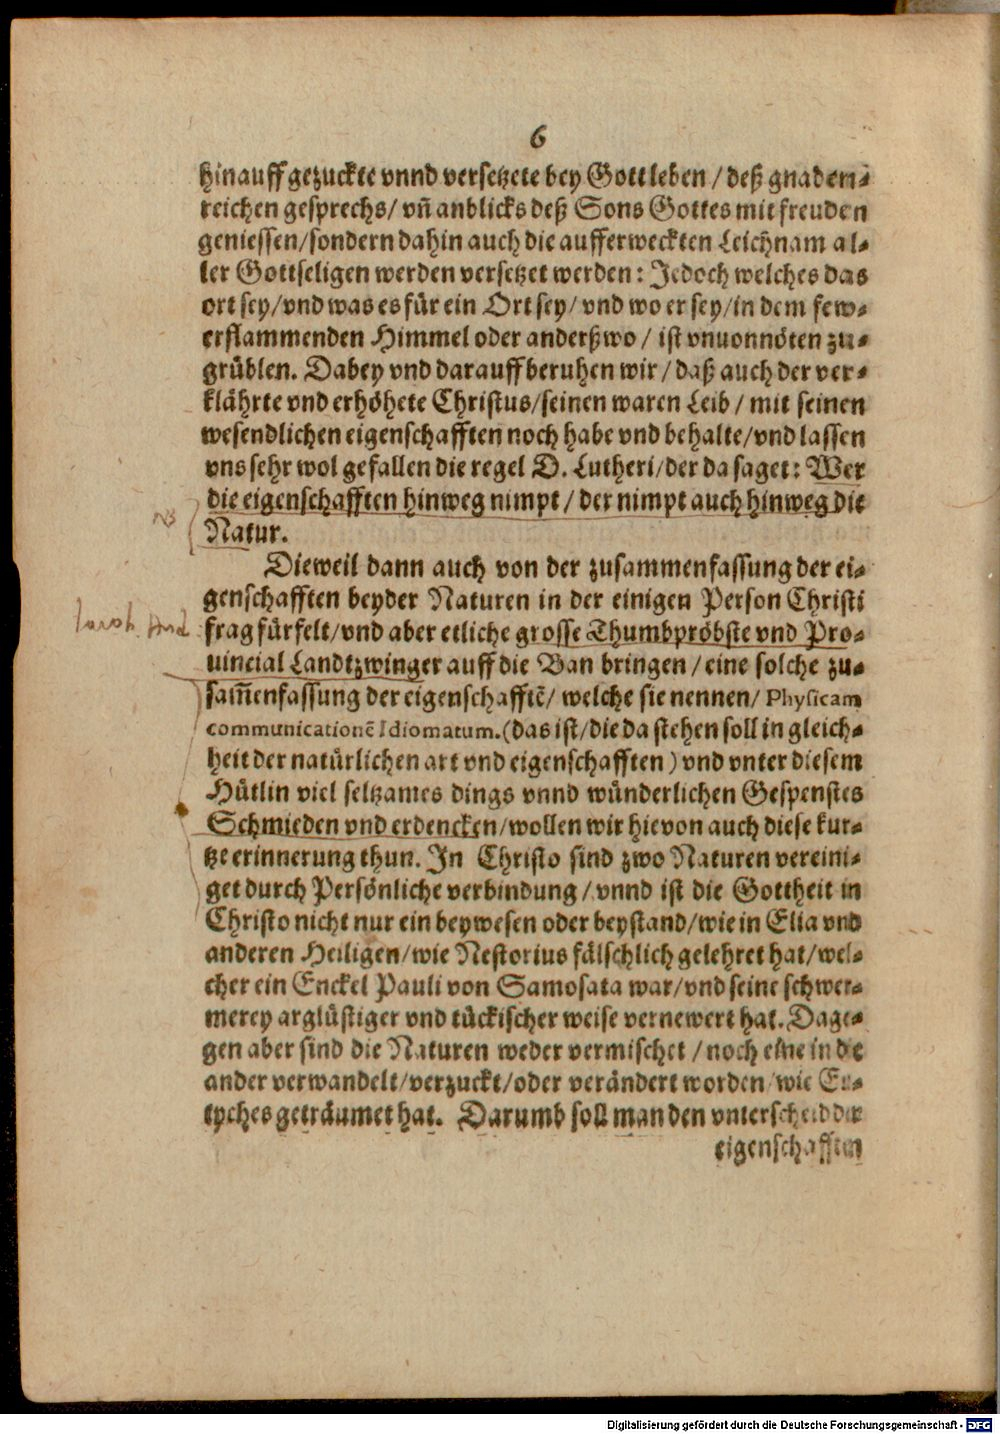 6
hinauff gezuckte vnnd versetzete bey Gott leben / deß gnaden-
reichen gesprechs/ vñ anblicks deß Sons Gottes mit freuden
geniessen/sondern dahin auch die aufferweckten Leichnam al-
ler Gottseligen werden versetzet werden: Jedoch welches das
ort sey/vnd was es für ein Ort sey/ vnd wo er sey/in dem few-
erflammenden Himmel oder anderßwo/ ist vnuonnöten zu-
grüblen. Dabey vnd darauff beruhen wir/ daß auch der ver-
klährte vnd erhöhete Christus/seinen waren Leib/ mit seinen
wesendlichen eigenschafften noch habe vnd behalte/vnd lassen
vns sehr wol gefallen die regel D. Lutheri/der da saget: Wer
die eigenschafften hinweg nimpt / der nimpt auch hinweg die
NB
Natur.
Dieweil dann auch von der zusammenfassung der ei-
genschafften beyder Naturen in der einigen Person Christi
frag fürfelt/vnd aber etliche grosse Thumbpröbste vnd Pro-
uincial Landtzwinger auff die Ban bringen / eine solche zu-
sam̃enfassung der eigenschafftẽ/ welche sie nennen/ Physicam
communicationẽ Idiomatum.(das ist/die da stehen soll in gleich-
heit der natürlichen art vnd eigenschafften) vnd vnter diesem
Hütlin viel seltzames dings vnnd wünderlichen Gespenstes
Schmieden vnd erdencken/wollen wir hievon auch diese kur-
tze erinnerung thun. In Christo sind zwo Naturen vereini-
get durch Persönliche verbindung / vnnd ist die Gottheit in
Christo nicht nur ein beywesen oder beystand/wie in Elia vnd
anderen Heiligen/wie Nestorius fälschlich gelehret hat/wel-
cher ein Enckel Pauli von Samosata war/vnd seine schwer-
merey arglüstiger vnd tückischer weise vernewert hat. Dage-
gen aber sind die Naturen weder vermischet / noch eine in die
ander verwandelt/verzuckt/oder verändert worden/wie Eu-
tyches geträumet hat. Darumb soll man den vnterscheid der
eigenschafften
Digitalisierung gefördert durch die Deutsche Forschungsgemeinschaft - DFG